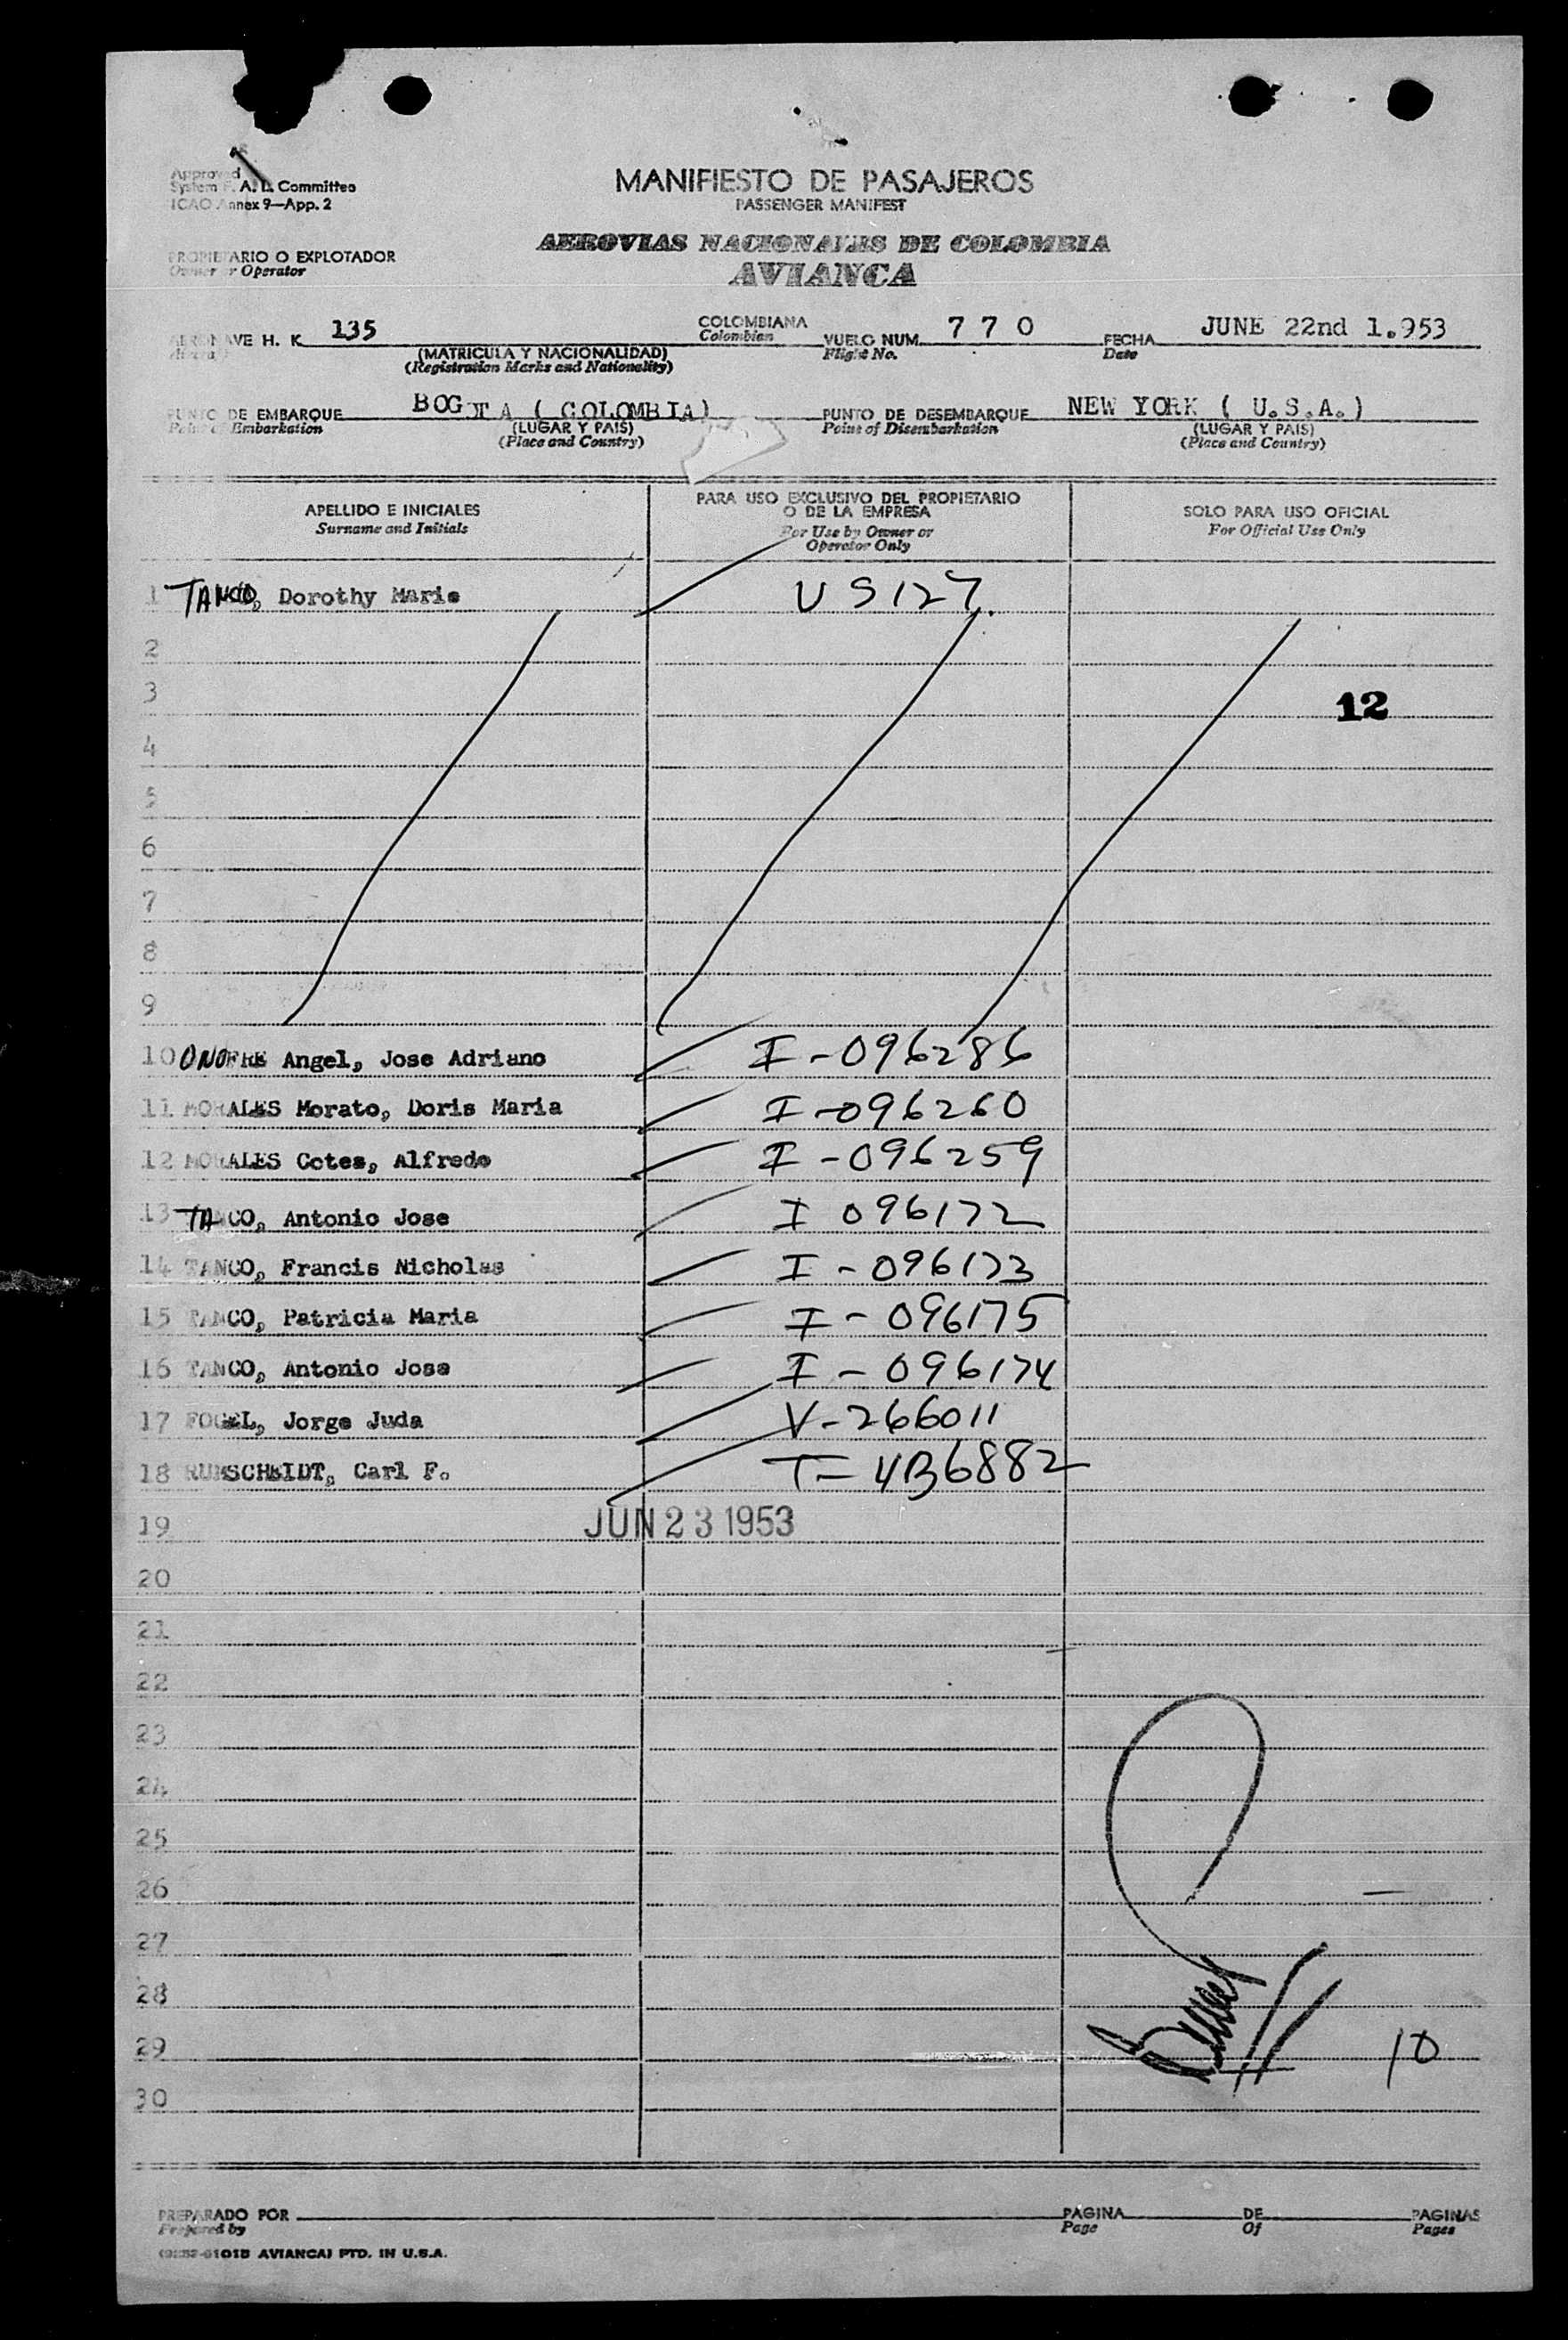 Approved
System F. A. L. Committee
ICAO Annex 9—App. 2
MANIFIESTO DE PASAJEROS
PASSENGER MANIFEST
AEROVIAS NACIONALES DE COLOMBIA
AVIANCA
PROPIETARIO O EXPLOTADOR
Owner or Operator
AERONAVE H. K. 135 COLOMBIANA VUELO NUM. 7 7 0 FECHA JUNE 22nd 1.953
Aircraft (MATRICULA Y NACIONALIDAD) Colombian Flight No. Date
(Registration Marks and Nationality)
PUNTO DE EMBARQUE BOGOTA ( COLOMBIA) PUNTO DE DESEMBARQUE NEW YORK ( U.S.A.)
Point of Embarkation (LUGAR Y PAIS) Point of Disembarkation (LUGAR Y PAIS)
(Place and Country) (Place and Country)
APELLIDO E INICIALES
Surname and Initials
PARA USO EXCLUSIVO DEL PROPIETARIO
O DE LA EMPRESA
For Use by Owner or
Operator Only
SOLO PARA USO OFICIAL
For Official Use Only
1 TANCO, Dorothy Marie US127.
2
3 12
4
5
6
7
8
9
10 ONOFRE Angel, Jose Adriano I-096286
11 MORALES Morato, Doris Maria I-096260
12 MORALES Cotes, Alfredo I-096259
13 TANCO, Antonio Jose I 096172
14 TANCO, Francis Nicholas I-096173
15 TANCO, Patricia Maria I-096175
16 TANCO, Antonio Jose I-096174
17 FOGEL, Jorge Juda V-266011
18 RUMSCHEIDT, Carl F. T-4B6882
19 JUN 23 1953
20
21
22
23
24
25
26
27
28
29 10
30
PREPARADO POR PAGINA DE PAGINAS
Prepared by Page Of Pages
AVIANCA) PTD. IN U.S.A.